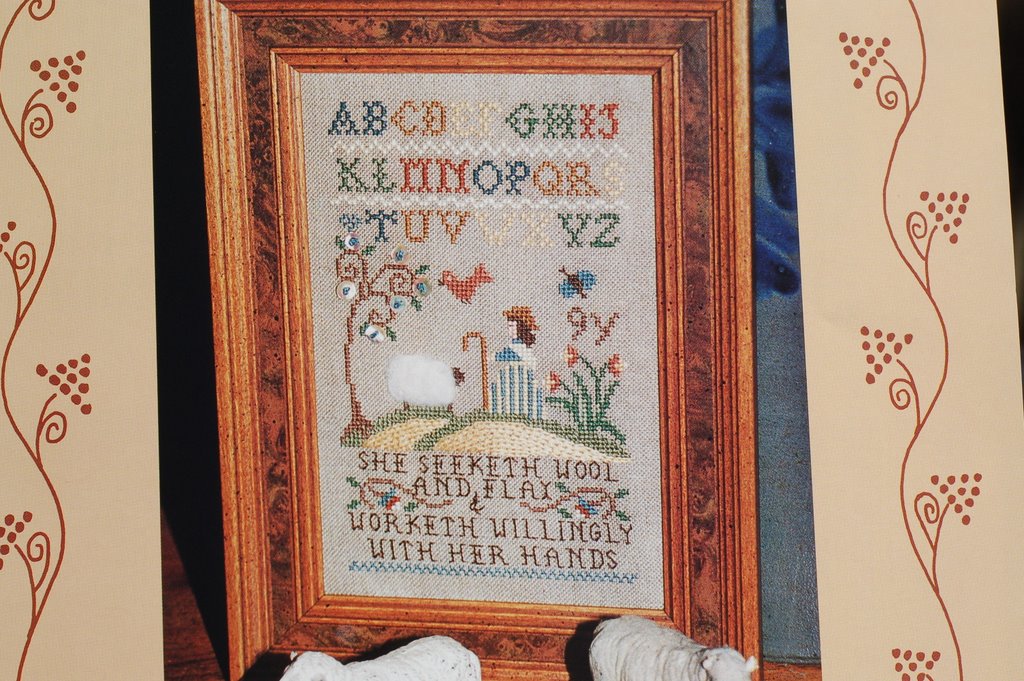 ABCDEFGHIJ
KLMNOPQRS
TUVWXYZ
SHE SEEKETH WOOL
AND FLAX
&
WORKETH WILLINGLY
WITH HER HANDS